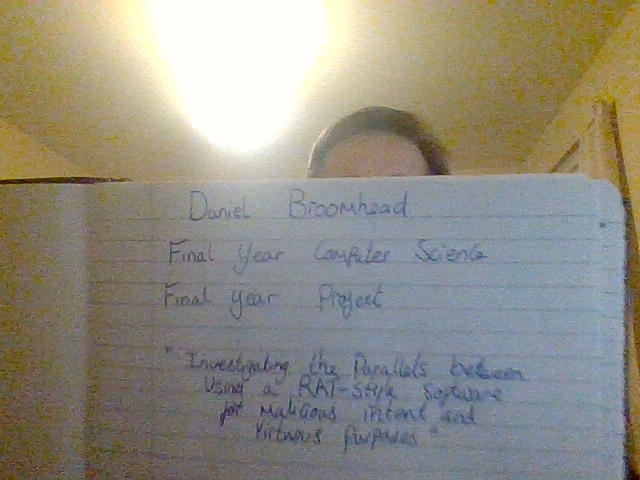 Daniel Broomhead
Final Year Computer Science
Final Year Project
"Investigating the Parallels between
Using a RAT-Style Software
for Malicious intent and
Virtuous purposes"